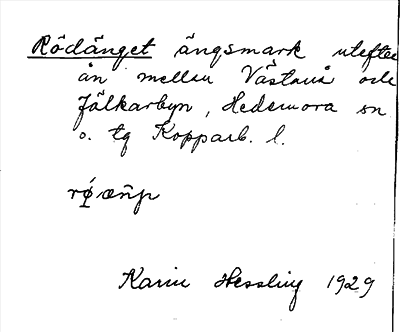 Rödänget ängsmark utefter
ån mellan Västanå och
Jälkarbyn, Hedemora sn.
o. tg Kopparb. l.
Karin Hessling 1929